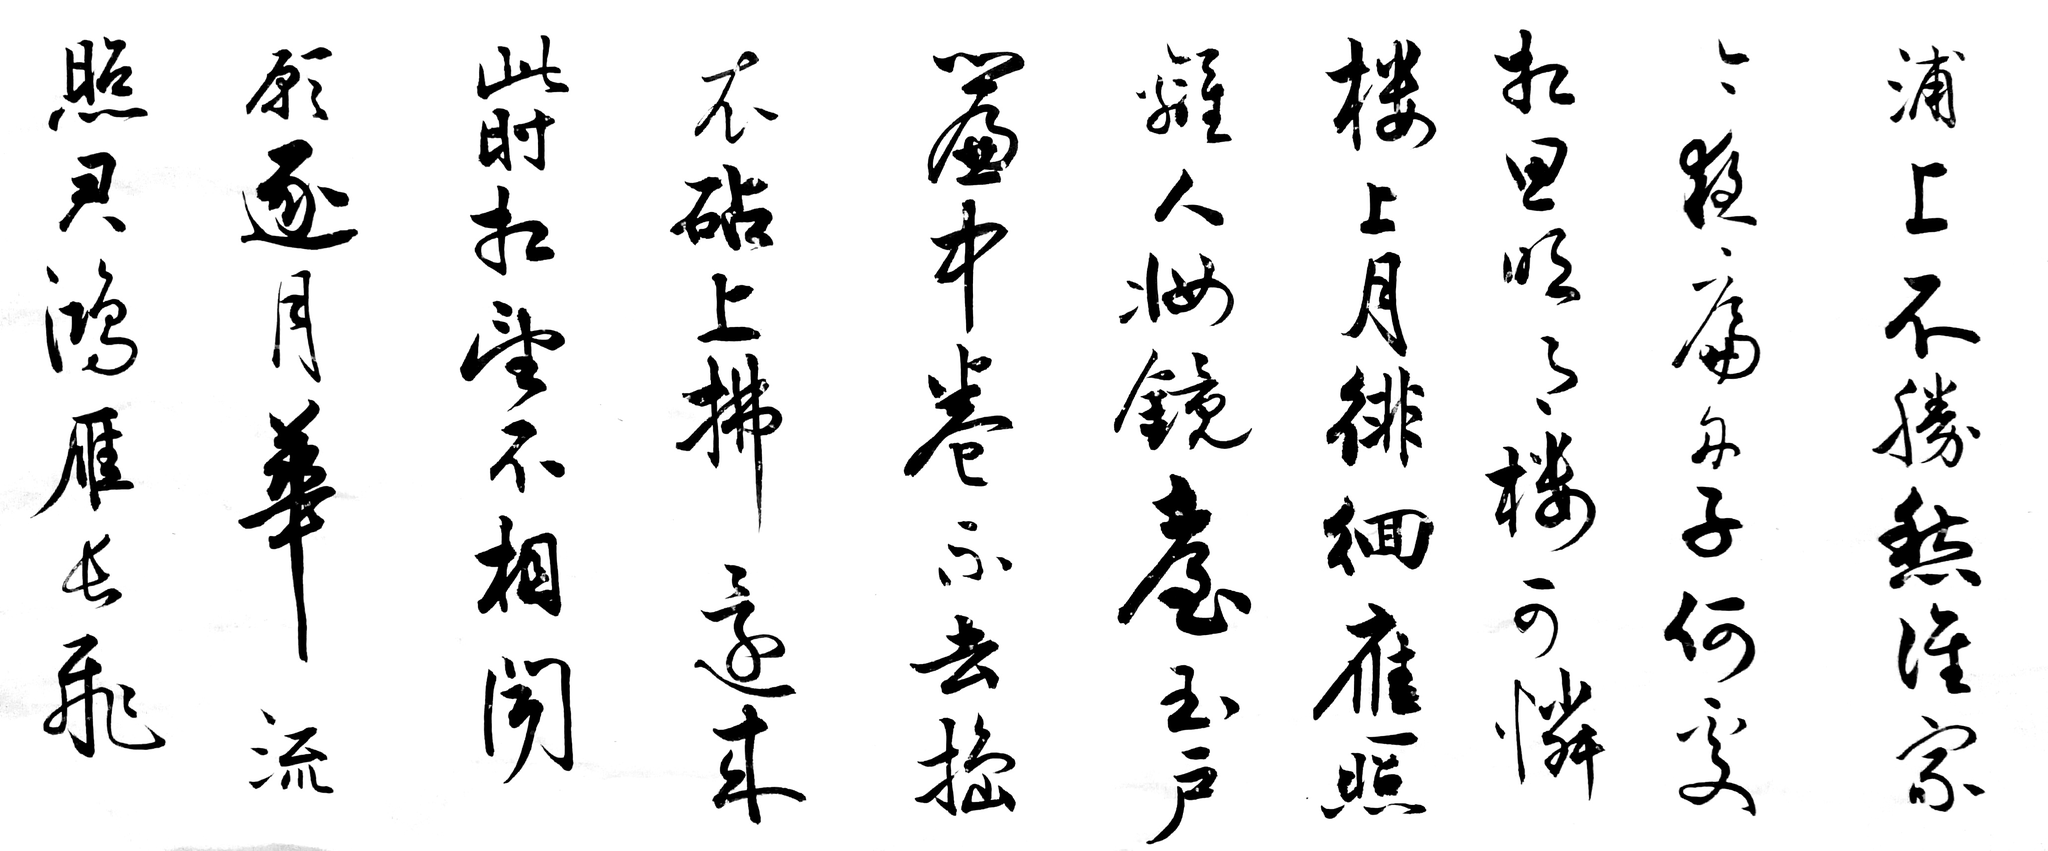 浦上不勝愁誰家
今夜扁舟子何處
相思明月楼可憐
楼上月徘徊應照
離人妝鏡臺玉戶
簾中卷不去搗
衣砧上拂還來
此时相望不相聞
願逐月華流
照君鴻雁長飛